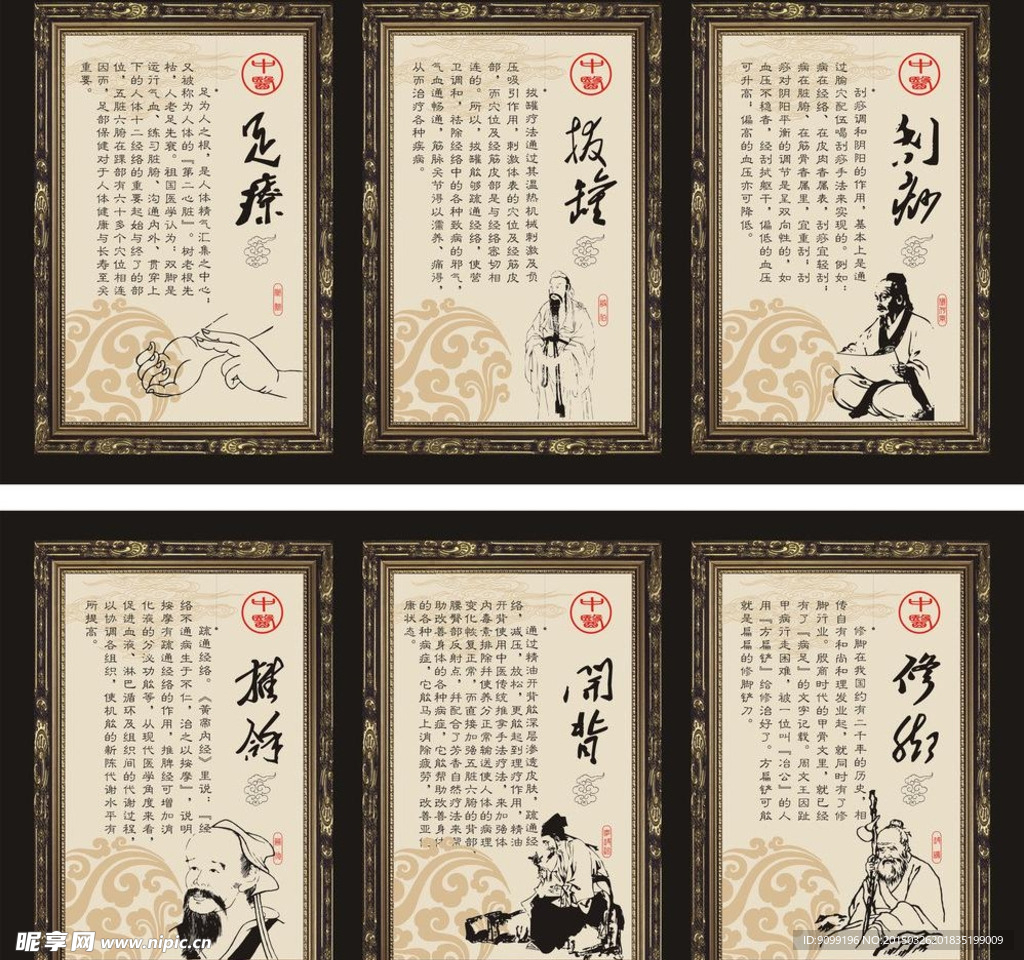 中醫
足療
足为人之根，是人体精气汇集之中心；
又被称为人体的『第二心脏』。树老根先
枯，人老足先衰。祖国医学认为：双脚是
运行气血、练习脏腑、沟通内外、贯穿上
下的人体十二经络的重要起始与终了的部
位，五脏六腑在踝部有六十多个穴位相连
因而，足部保健对于人体健康与长寿至关
重要。
中醫
拔罐
拔罐疗法通过其温热机械刺激及负
压吸引作用，刺激体表的穴位及经筋皮
部，而穴位及经筋皮部是与经络密切相
连的。所以，拔罐能够疏通经络，使营
卫调和，祛除经络中的各种致病的邪气，
气血通畅通，筋脉关节得以濡养、痛得，
从而治疗各种疾病。
中醫
刮痧
刮痧调和阴阳的作用，基本上是通
过腧穴配伍喝刮痧手法来实现的。例如：
病在经络、在皮肉者属表，刮痧宜轻刮；
病在脏腑、在筋骨者属里，宜重刮；刮
痧对阴阳平衡的调节是呈双向性的，如
血压不稳者，经刮拭躯干，偏低的血压
可升高；偏高的血压亦可降低。
中醫
推拿
疏通经络。《黄帝内经》里说：『经
络不通病生于不仁，治之以按摩』，说明
按摩有疏通经络的作用，推脾经可增加消
化液的分泌功能等，从现代医学角度来看，
促进血液、淋巴循环及组织间的代谢过程，
以协调各组织，使机能的新陈代谢水平有
所提高。
中醫
開背
通过精油开背能深层渗透皮肤，疏通经
络，减压，放松，更能起到理疗作用，精油
开背使用中医传统推拿手法疗法，来加强体
内毒素排除并使养分正常输送使人体的病理
变化恢复正常，而直接加强五脏六腑的背部，
腰臀部反射点，并配合了芳香自然疗法来帮
助改善身体的各种病症，它能帮助改善身体
的各种病症，它能马上消除疲劳，改善亚健
康状态。
中醫
修脚
修脚在我国约有二千年的历史，相
传自有和尚和理发业起，就同时有了修
脚行业。殷商时代的甲骨文里，就已经
有了『病足』的文字记载。周文王因趾
甲病行走困难，被一位叫『冶公』的人
用『方扁铲』给修治好了。方扁铲可能
就是扁扁的修脚铲刀。
昵享网 www.nipic.cn
ID:9099196 NO:20150326201835199009